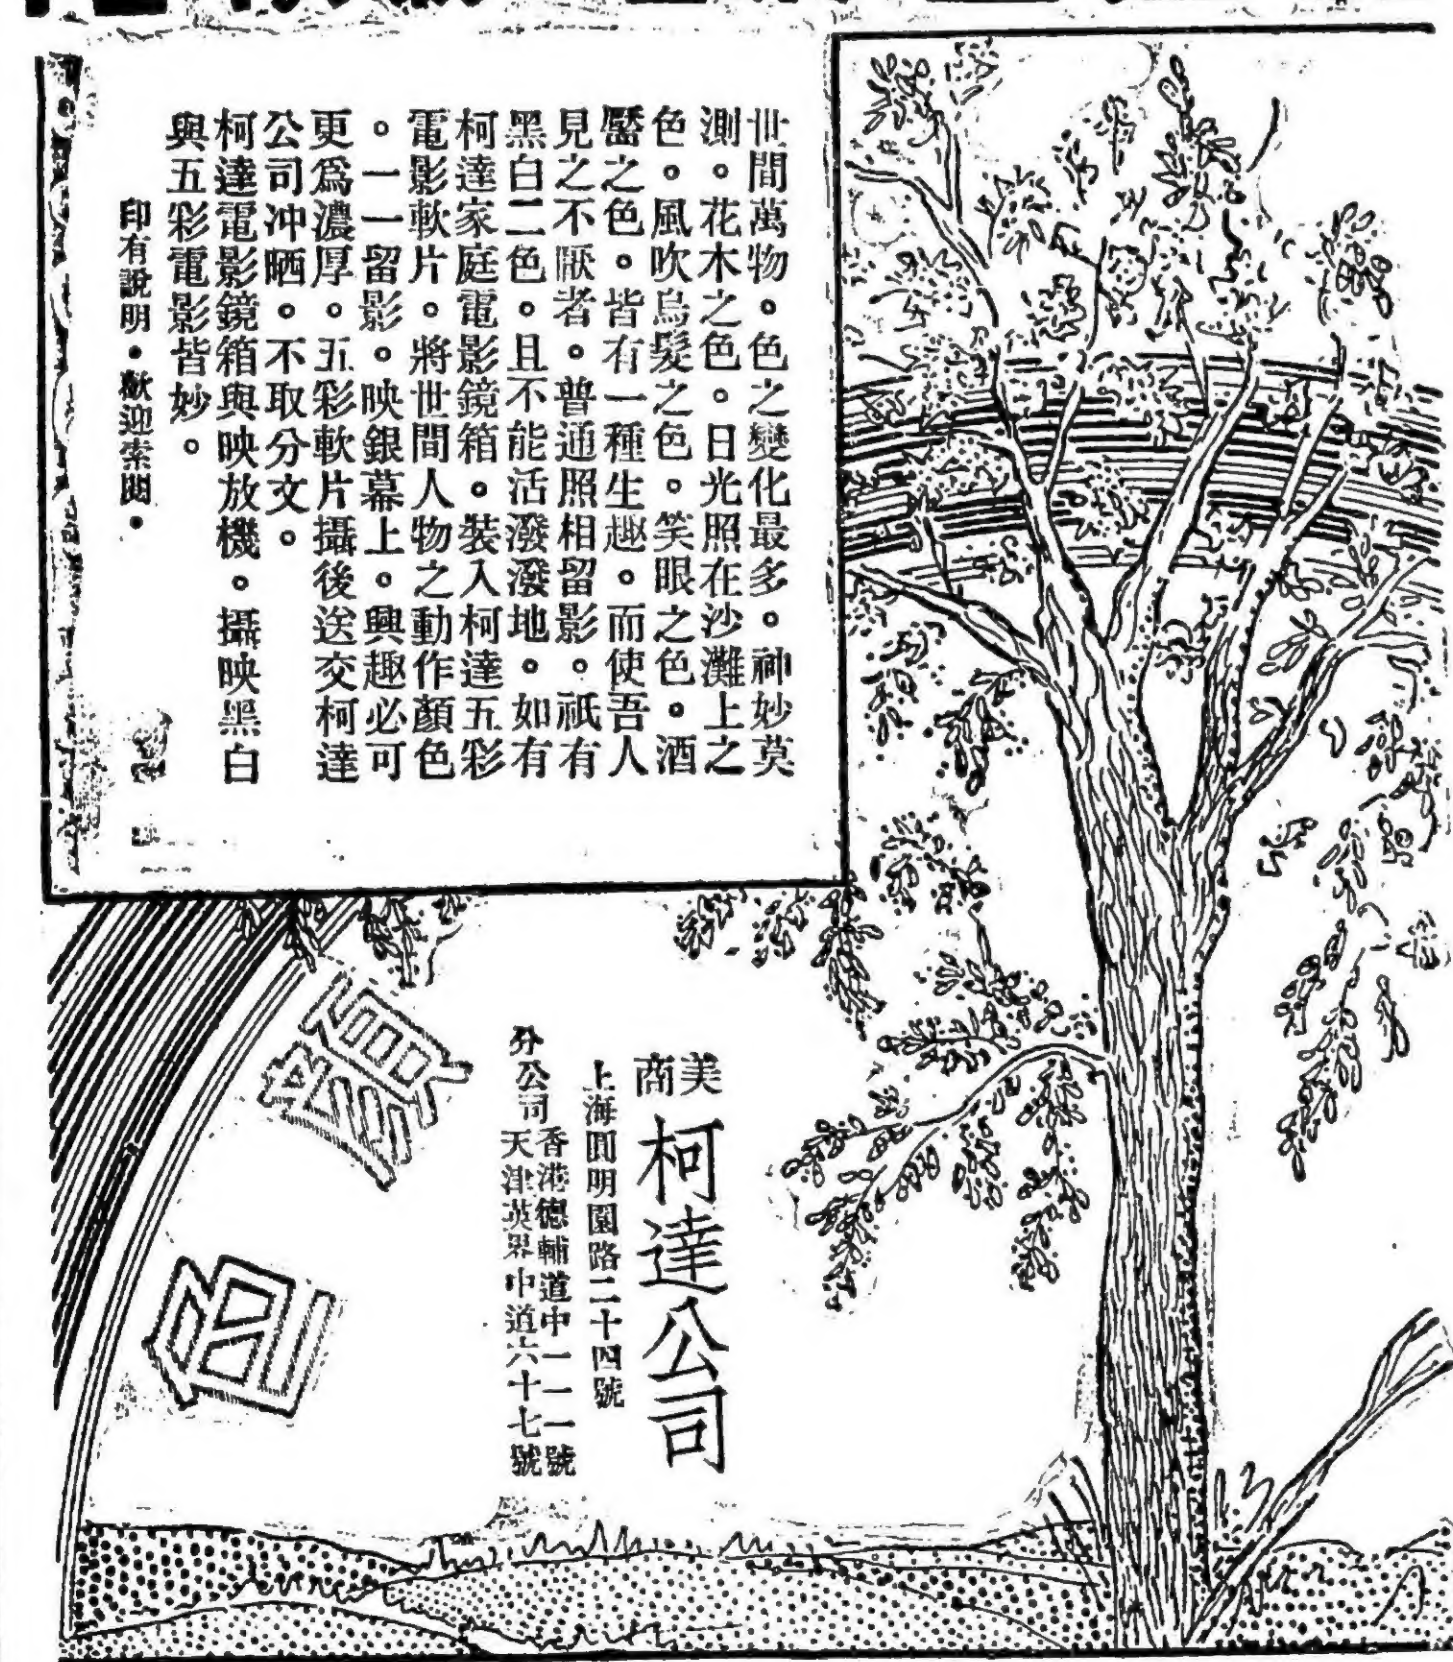 世間萬物。色之變化最多。神妙莫
測。花木之色。日光照在沙灘上之
色。風吹烏髮之色。笑眼之色。酒
靨之色。皆有一種生趣。而使吾人
見之不厭者。普通照相留影。祇有
黑白二色。且不能活潑潑地。如有
柯達家庭電影鏡箱。裝入柯達五彩
電影軟片。將世間人物之動作顏色
。一一留影。映銀幕上。興趣必可
更爲濃厚。五彩軟片攝後送交柯達
公司冲晒。不取分文。
柯達電影鏡箱與映放機。攝映黑白
與五彩電影皆妙。
印有說明。歡迎索閱。
美商
柯達公司
上海圓明園路二十四號
分公司
香港德輔道中一一一號
天津英界中道六十七號
色